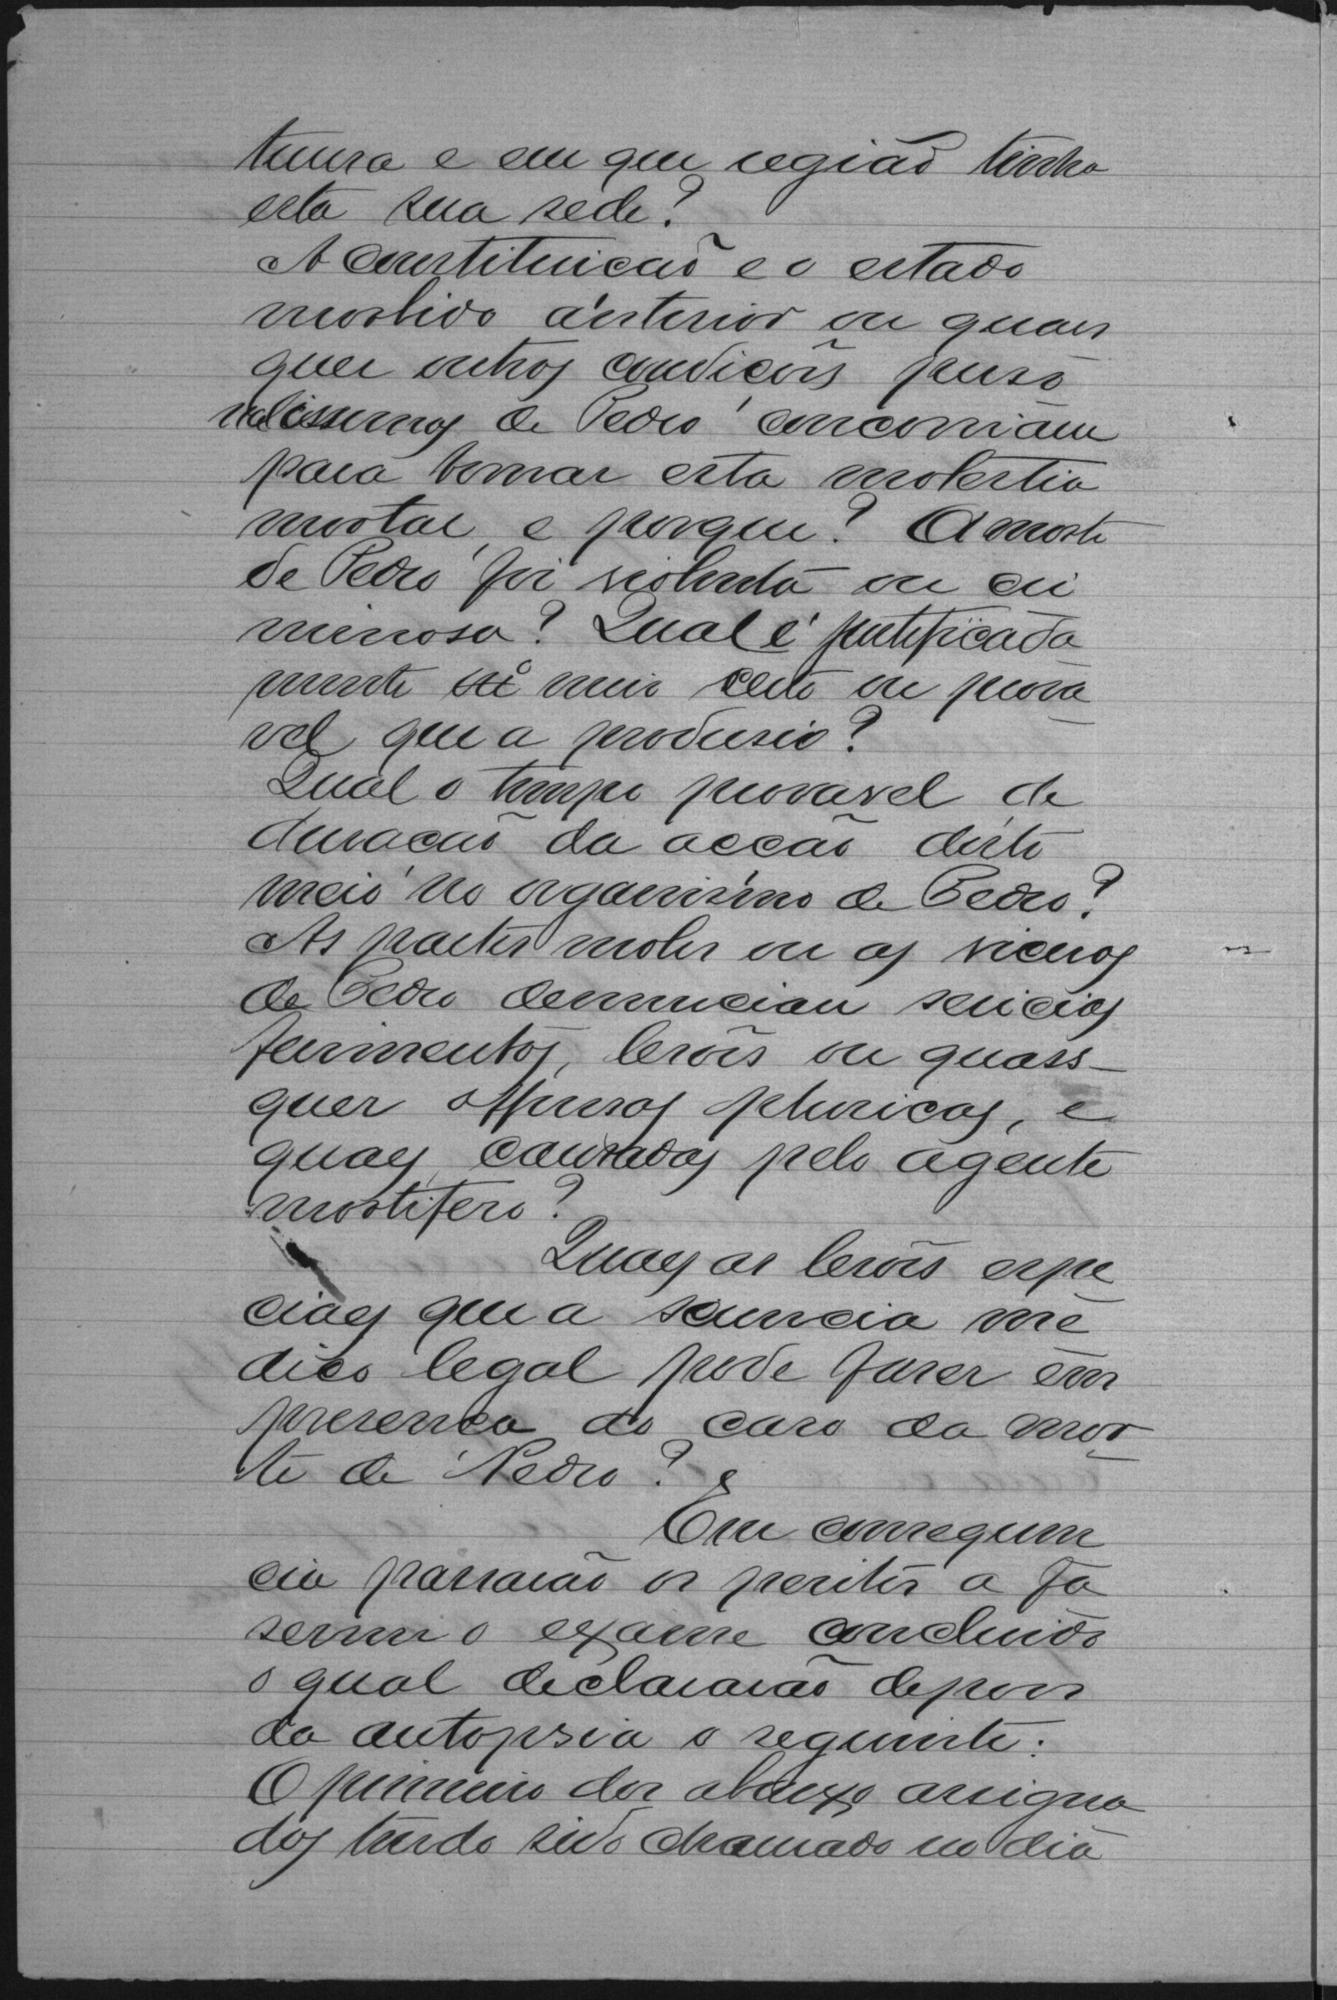 tureza e em que região tinha
esta sua sede?
A constituicaõ e o estado
morbido anterior ou quaes
quer outras condicões perso
nalissimas de Pedro concorriam
para tornar esta molestia
mortal, e porque? A morte
de Pedro foi violenta ou cri
minosa? Qual é justificada
mente o meio certo ou prova
vel que a produsio?
Qual o tempo provavel de
duracaõ da accaõ deste
meio no organismo de Pedro?
As partes moles ou as viceras
de Pedro denunciam sevicias
ferimentos, lesões ou quaes-
quer offensas phisicas, e
quaes causadas pelo agente
mortifero?
Quaes as lesões espe
ciaes que a sciencia me
dico legal pode faser em
presenca do caso da mor
te de Pedro? e
Em consequen
cia passaraõ os peritos a fa
serem o exame concluido
o qual declararaõ depois
da autopsia o seguinte:
O primeiro dos abaixo assigna
dos tendo sido chamado no dia